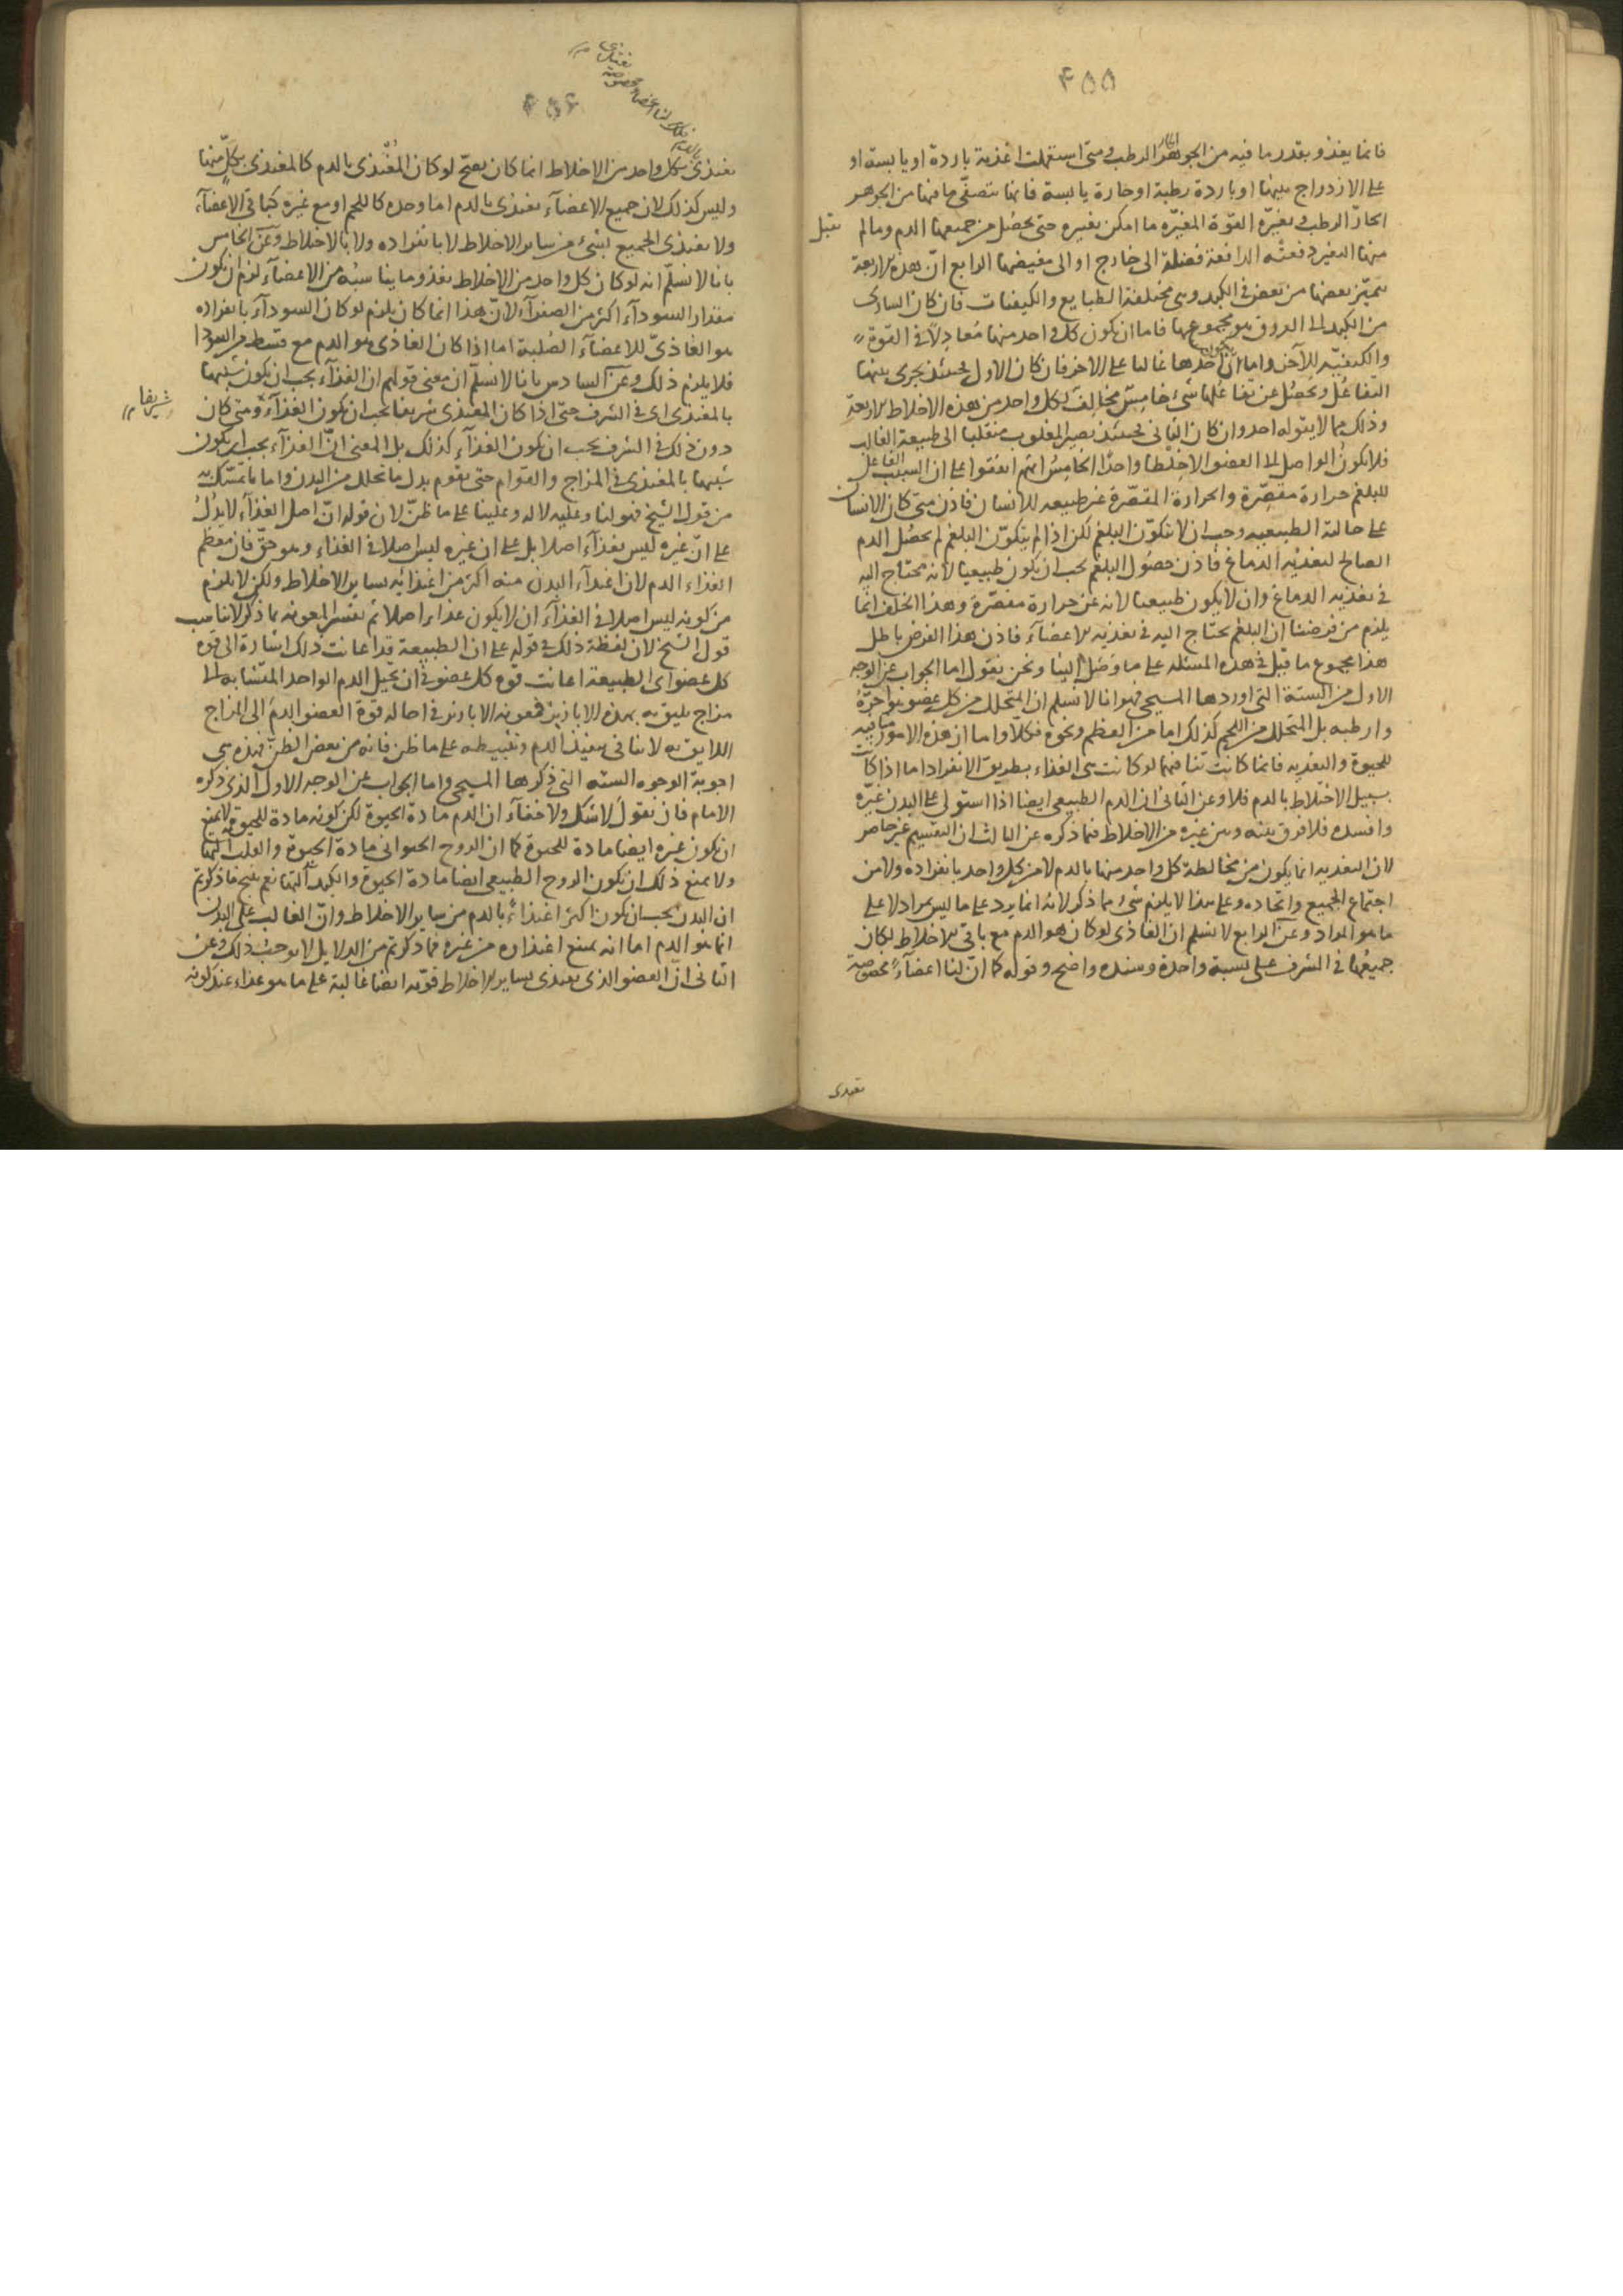 ۴۵۵
فانما يغذو بقدر ما فيه من الجوهر الحار الرطب ومتى استعملت اغذية باردة او يابسة او
على الازدواج بينهما او باردة رطبة او حارة يابسة فانما تتصفى ما فيها من الجوهر
الحار الرطب وتغيره القوة المغيره ما امكن تغيره حتى يحصل من جميعها الدم وما لم يقبل
منها التغير دفعته الدافعة فضلة الى خارج او الى مغيضها الرابع ان هذه الاربعة
يتميز بعضها من بعض في الكبد وهى مختلفة الطبايع والكيفيات فان كان السارى
من الكبد الى العروق هو مجموعها فاما ان يكون كل واحد منها معادلا في القوة
والكيفية للآخر واما ان يكون احدها غالبا على الاخر فان كان الاول فحينئذ يجرى بينهما
التفاعل ويحصل عن تفاعلها شئ خامس مخالف لكل واحد من هذه الاخلاط الاربعة
وذلك مما لا يقوله احد وان كان الثانى فحينئذ يصير المغلوب منقلبا الى طبيعة الغالب
فلا يكون الواصل الى العضو الا خلطا واحدا الخامس انهم اتفقوا على ان السبب الفاعل
للبلغم حرارة مقصرة والحرارة المقصرة غير طبيعيه للانسان فاذن متى كان الانسان
على حالته الطبيعيه وجب ان لا يتكون البلغم لكن اذا لم يتكون البلغم لم يحصل الدم
الصالح لتغذية الدماغ فاذن حصول البلغم يجب ان يكون طبيعيا لانه محتاج اليه
في تغذيه الدماغ وان لا يكون طبيعيا لانه عن حرارة مقصرة وهذا الخلف انما
يلزم من فرضنا ان البلغم يحتاج اليه في تغذيه الاعضاء فاذن هذا الفرض باطل
هذا مجموع ما قيل في هذه المسئله على ما وصل الينا ونحن نقول اما الجواب عن الوجه
الاول من الستة التى اوردها المسيحى فهو انا لا نسلم ان المتحلل من كل عضو هو احره
وارطبه بل المتحلل من اللحم كذلك اما من العظم ونحوه فكلا واما ان هذه الامور منافيه
للحيوة والتغذيه فانما كانت تنافيهما لو كانت هى الغذاء بطريق الانفراد اما اذا كانت
بسبيل الاختلاط بالدم فلا وعن الثانى ان الدم الطبيعى ايضا اذا استولى على البدن غيره
وافسده فلا فرق بينه وبين غيره من الاخلاط فيما ذكره عن الثالث ان التقسيم غير حاصر
لان التغذيه انما يكون من مخالطة كل واحد منها بالدم لا من كل واحد بانفراده ولا من
اجتماع الجميع واتحاده وعلى هذا لا يلزم شئ مما ذكر لانه انما يرد على ما ليس بمراد لا على
ما هو المراد وعن الرابع لا نسلم ان الغاذى لو كان هو الدم مع باقى الاخلاط لكان
جميعها في الشرف على نسبة واحدة وسنده واضح وقوله كما ان لنا اعضاء مخصوصة
تغتذى
يغتذى بكل واحد من الاخلاط انما كان يصح لو كان المغتذى بالدم كالمغتذى بكل منها
وليس كذلك لان جميع الاعضاء تغتذى بالدم اما وحده كاللحم او مع غيره كباقى الاعضاء
ولا يغتذى الجميع بشئ من ساير الاخلاط لا بانفراده ولا بالاختلاط وعن الخامس
بانا لا نسلم انه لو كان كل واحد من الاخلاط يغذو ما يناسبه من الاعضاء لزم ان يكون
مقدار السوداء اكثر من الصفراء لان هذا انما كان يلزم لو كان السوداء بانفراده
هو الغاذى للاعضاء الصلبة اما اذا كان الغاذى هو الدم مع قسط من السودا
فلا يلزم ذلك وعن السادس بانا لا نسلم ان معنى قولهم ان الغذاء يجب ان يكون شبيها
بالمغتذى اى في الشرف حتى اذا كان المغتذى شريفا يجب ان يكون الغذاء شريفا ومتى كان
دون ذلك في الشرف يجب ان يكون الغذاء كذلك بل المعنى ان الغذاء يجب ان يكون
شبيها بالمغتذى في المزاج والقوام حتى يقوم بدل ما تحلل من البدن واما ما تمسك به
من قول الشيخ فهو لنا وعليه لا له وعلينا على ما ظن لان قوله ان اصل الغذاء لا يدل
على ان غيره ليس بغذاء اصلا بل على ان غيره ليس اصلا في الغذاء وهو حق فان معظم
الغذاء الدم لان اغتذاء البدن منه اكثر من اغتذائه بساير الاخلاط ولكن لا يلزم
من كونه ليس اصلا في الغذاء ان لا يكون غذاء اصلا ثم تفسير المعونه بما ذكر لا يناسب
قول الشيخ لان لفظة ذلك في قوله على ان الطبيعة قد اعانت ذلك اشارة الى قوة
كل عضو اى الطبيعة اعانت قوة كل عضو في ان يحيل الدم الواحد المتشابه الى
مزاج يليق به بهذه الابازير فمعونة الابازير في احالة قوة العضو الدم الى المزاج
اللايق به لا تنافى تنفيذ الدم وتثبيطه على ما ظن فانه من بعض الظن فهذه هى
اجوبة الوجوه الستة التى ذكرها المسيحى واما الجواب عن الوجه الاول الذى ذكره
الامام فان نقول لا شك ولا خفاء ان الدم مادة الحيوة لكن كونه مادة للحيوة لا يمنع
ان يكون غيره ايضا مادة للحيوة كما ان الروح الحيوانى مادة الحيوة والقلب آلتها
ولا يمنع ذلك ان يكون الروح الطبيعى ايضا مادة الحيوة والكبد آلتها نعم ينتج ما ذكرتم
ان البدن يجب ان يكون اكثر اغتذاء بالدم من ساير الاخلاط وان الغالب على البدن
انما هو الدم اما انه يمنع اغتذاه من غيره فما ذكرتم من الدلايل لا يوجب ذلك وعن
الثانى ان العضو الذى يغتذى بساير الاخلاط قوته ايضا غالبة على ما هو غذاء عند كونه